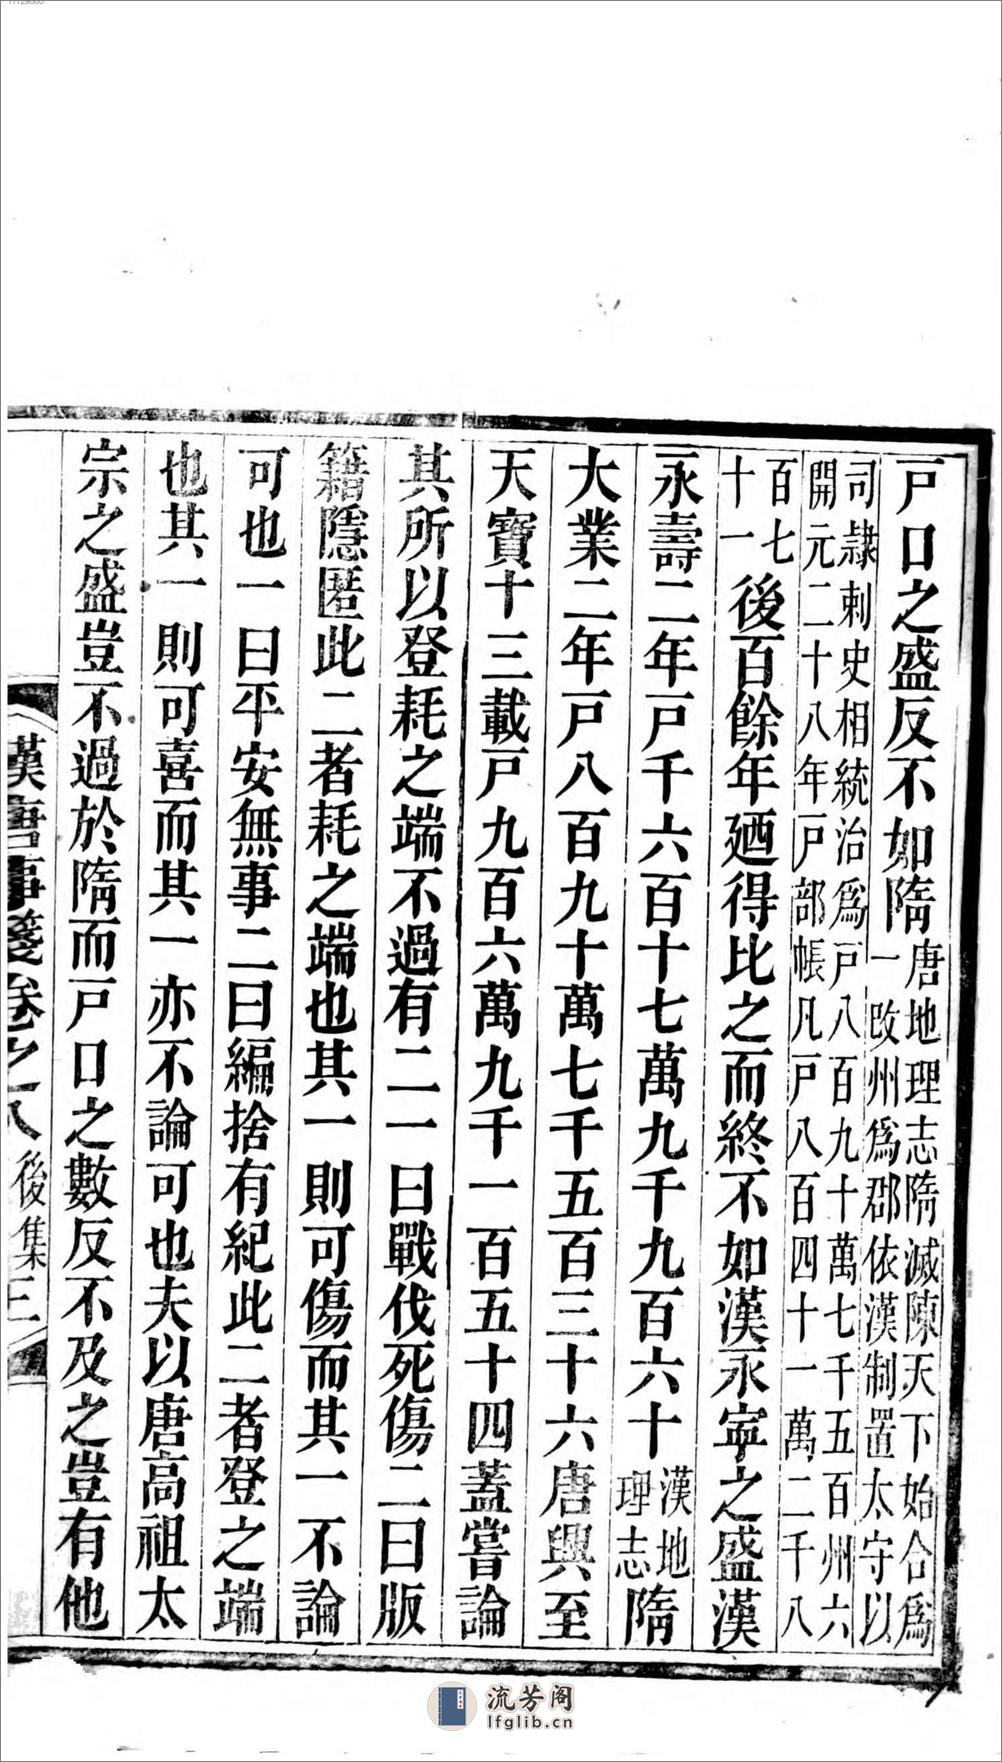 11129000
戸口之盛反不如隋唐地理志隋滅陳天下始合爲
一改州爲郡依漢制置太守以
司隸刺史相統治爲戸八百九十萬七千五百州六
開元二十八年戸部帳凡戸八百四十一萬二千八
百七
十一後百餘年廼得比之而終不如漢永寧之盛漢
永壽二年戸千六百十七萬九千九百六十漢地
理志隋
大業二年戸八百九十萬七千五百三十六唐興至
天寶十三載戸九百六萬九千一百五十四蓋嘗論
其所以登耗之端不過有二一曰戰伐死傷二曰版
籍隱匿此二者耗之端也其一則可傷而其一不論
可也一曰平安無事二曰編捨有紀此二者登之端
也其一則可喜而其一亦不論可也夫以唐高祖太
宗之盛豈不過於隋而戸口之數反不及之豈有他
漢唐事箋卷之八後集三
流芳阁
lfglib.cn